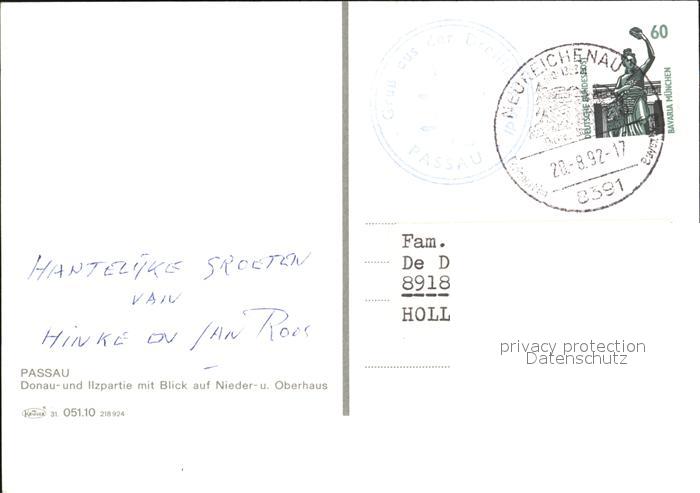 Gruß aus der
PASSAU
60
DEUTSCHE BUNDESPOST
BAVARIA MÜNCHEN
NEUREICHENAU
28.-8.92-17
8391
HARTELIJKE GROETEN
VAN
HINKE EN JAN ROOS
Fam.
De D
8918
HOLL
privacy protection
Datenschutz
PASSAU
Donau- und Ilzpartie mit Blick auf Nieder- u. Oberhaus
KRÜGER 31. 051.10 218 924